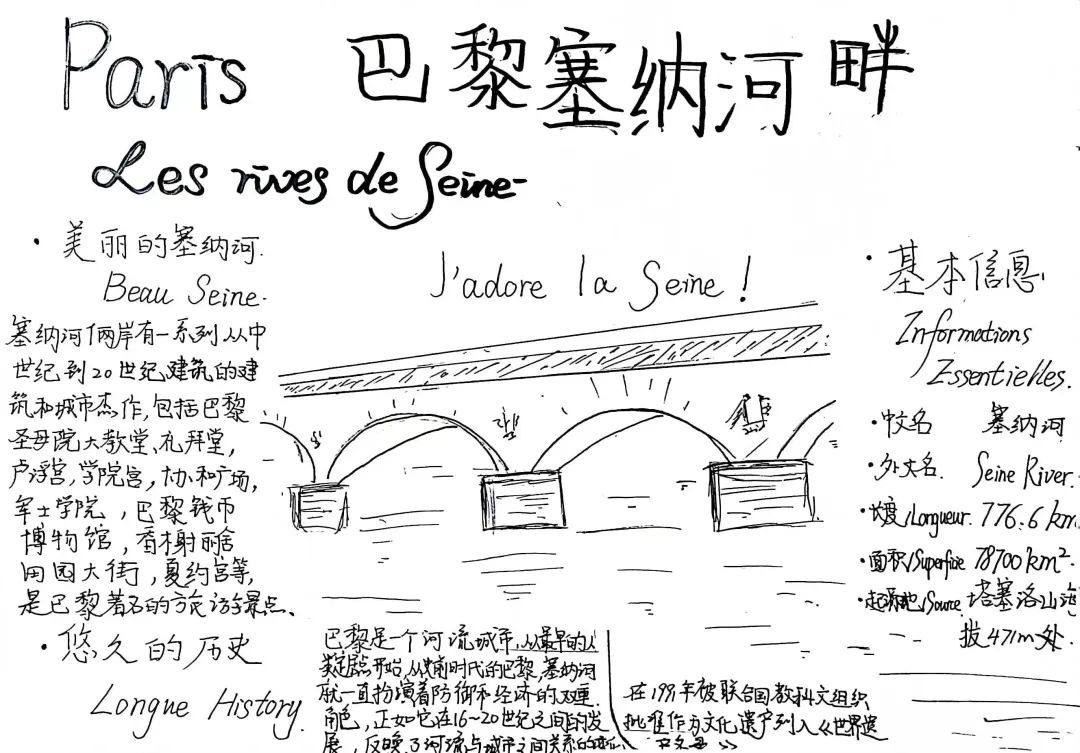 Paris 巴黎塞纳河畔
Les rives de Seine
· 美丽的塞纳河.
Beau Seine.
塞纳河俩岸有一系列从中
世纪到20世纪建筑的建
筑和城市杰作,包括巴黎
圣母院大教堂、礼拜堂,
卢浮宫,学院宫,协和广场,
军士学院,巴黎钱币
博物馆,香榭丽舍
田园大街,夏约宫等,
是巴黎著名的旅访景点、
J'adore la Seine!
· 基本信息
Informations
Essentiehles.
·中文名 塞纳河
·外文名. Seine River.
·长度/Longueur. 776.6 km
·面积/Superfire 78700 km².
·起源地/Source 塔塞洛山海
拔471m处.
· 悠久的历史
Longue History
巴黎是一个河流城市,从最早的人
类定居开始,从时代的巴黎,塞纳河
就一直扮演着防御和经济的双重
角色,正如它在16~20世纪之间的发
展,反映了河流与城市之间关系的
在1991年被联合国教科文组织
批准作为文化遗产列入《世界遗